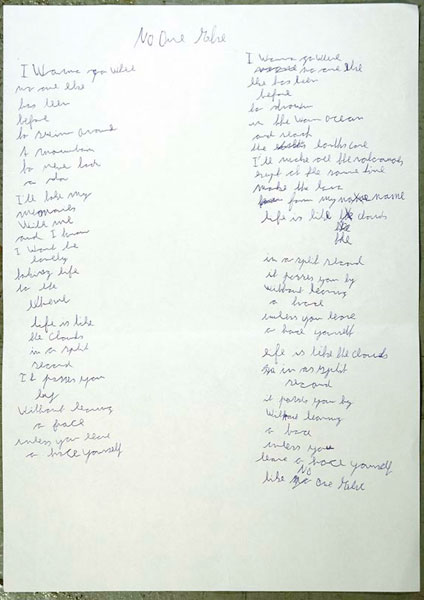 No One Else
I Wanna go where
no one else
has been
before
to swim around
A mountain
to never look
a
I'll take my
memories
With me
and I know
I Wont be
lonely
taking life
to the
extreme
life is like
the clouds
in a split
second
It passes you
by
Without leaving
a trace
unless you leave
a trace yourself
I Wanna go where
no one else
the has been
before
to drown
in the warm ocean
and reach
the earths core
I'll make all the volcanoes
erupt at the same time
make the lava
form my name
life is like the clouds
the
the
in a split second
it passes you by
Without leaving
a trace
unless you leave
a trace yourself
life is like the clouds
in a split
second
it passes you by
Without leaving
a trace
unless you
leave a trace yourself
like No One Else